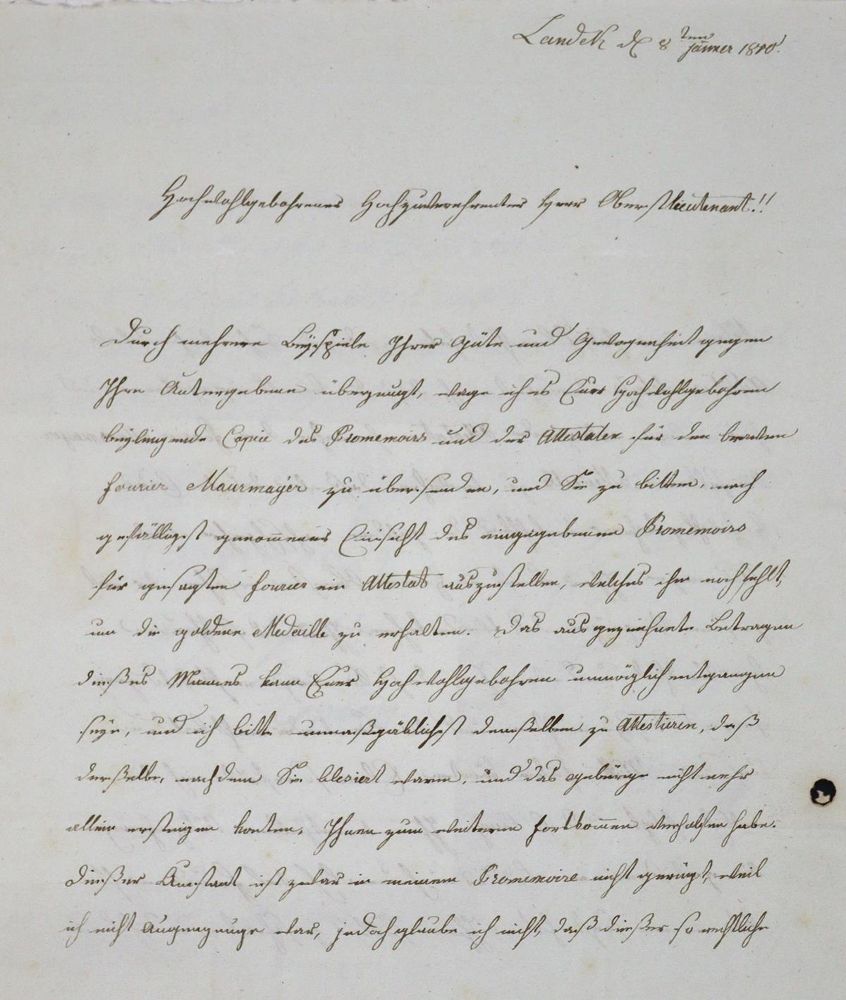 Landek d 8ten Jänner 1810.
Hochwohlgebohrener Hochzuverehrender Herr Oberstlieutenant!!
Durch mehrere Beyspiele Ihrer Güte und Gewogenheit gegen
Ihre Untergebene überzeugt, wage ich es Euer Hochwohlgebohren
beyliegende Copie des Promemoirs und der Attestaten für den braven
Fourier Maurmayer zu übersenden, und Sie zu bitten, nach
gefälligst genommener Einsicht des eingegebenen Promemoirs
für gesagten Fourier ein Attestat auszustellen, welches ihm noch fehlt,
um die goldene Medaille zu erhalten. Das ausgezeichnete Betragen
dieses Mannes kann Euer Hochwohlgebohren unmöglich entgangen
seyn, und ich bitte unmaßgäblichst demselben zu Attestiren, daß
derselbe, nachdem Sie blesiert waren, und das gebürge nicht mehr
allein ersteigen konten, Ihnen zum weiteren Fortkommen verholfen habe.
Dießer Umstand ist zwar in meinem Promemoire nicht gerügt, weil
ich nicht Augenzeuge war, jedoch glaube ich nicht, daß dießer so rechtliche